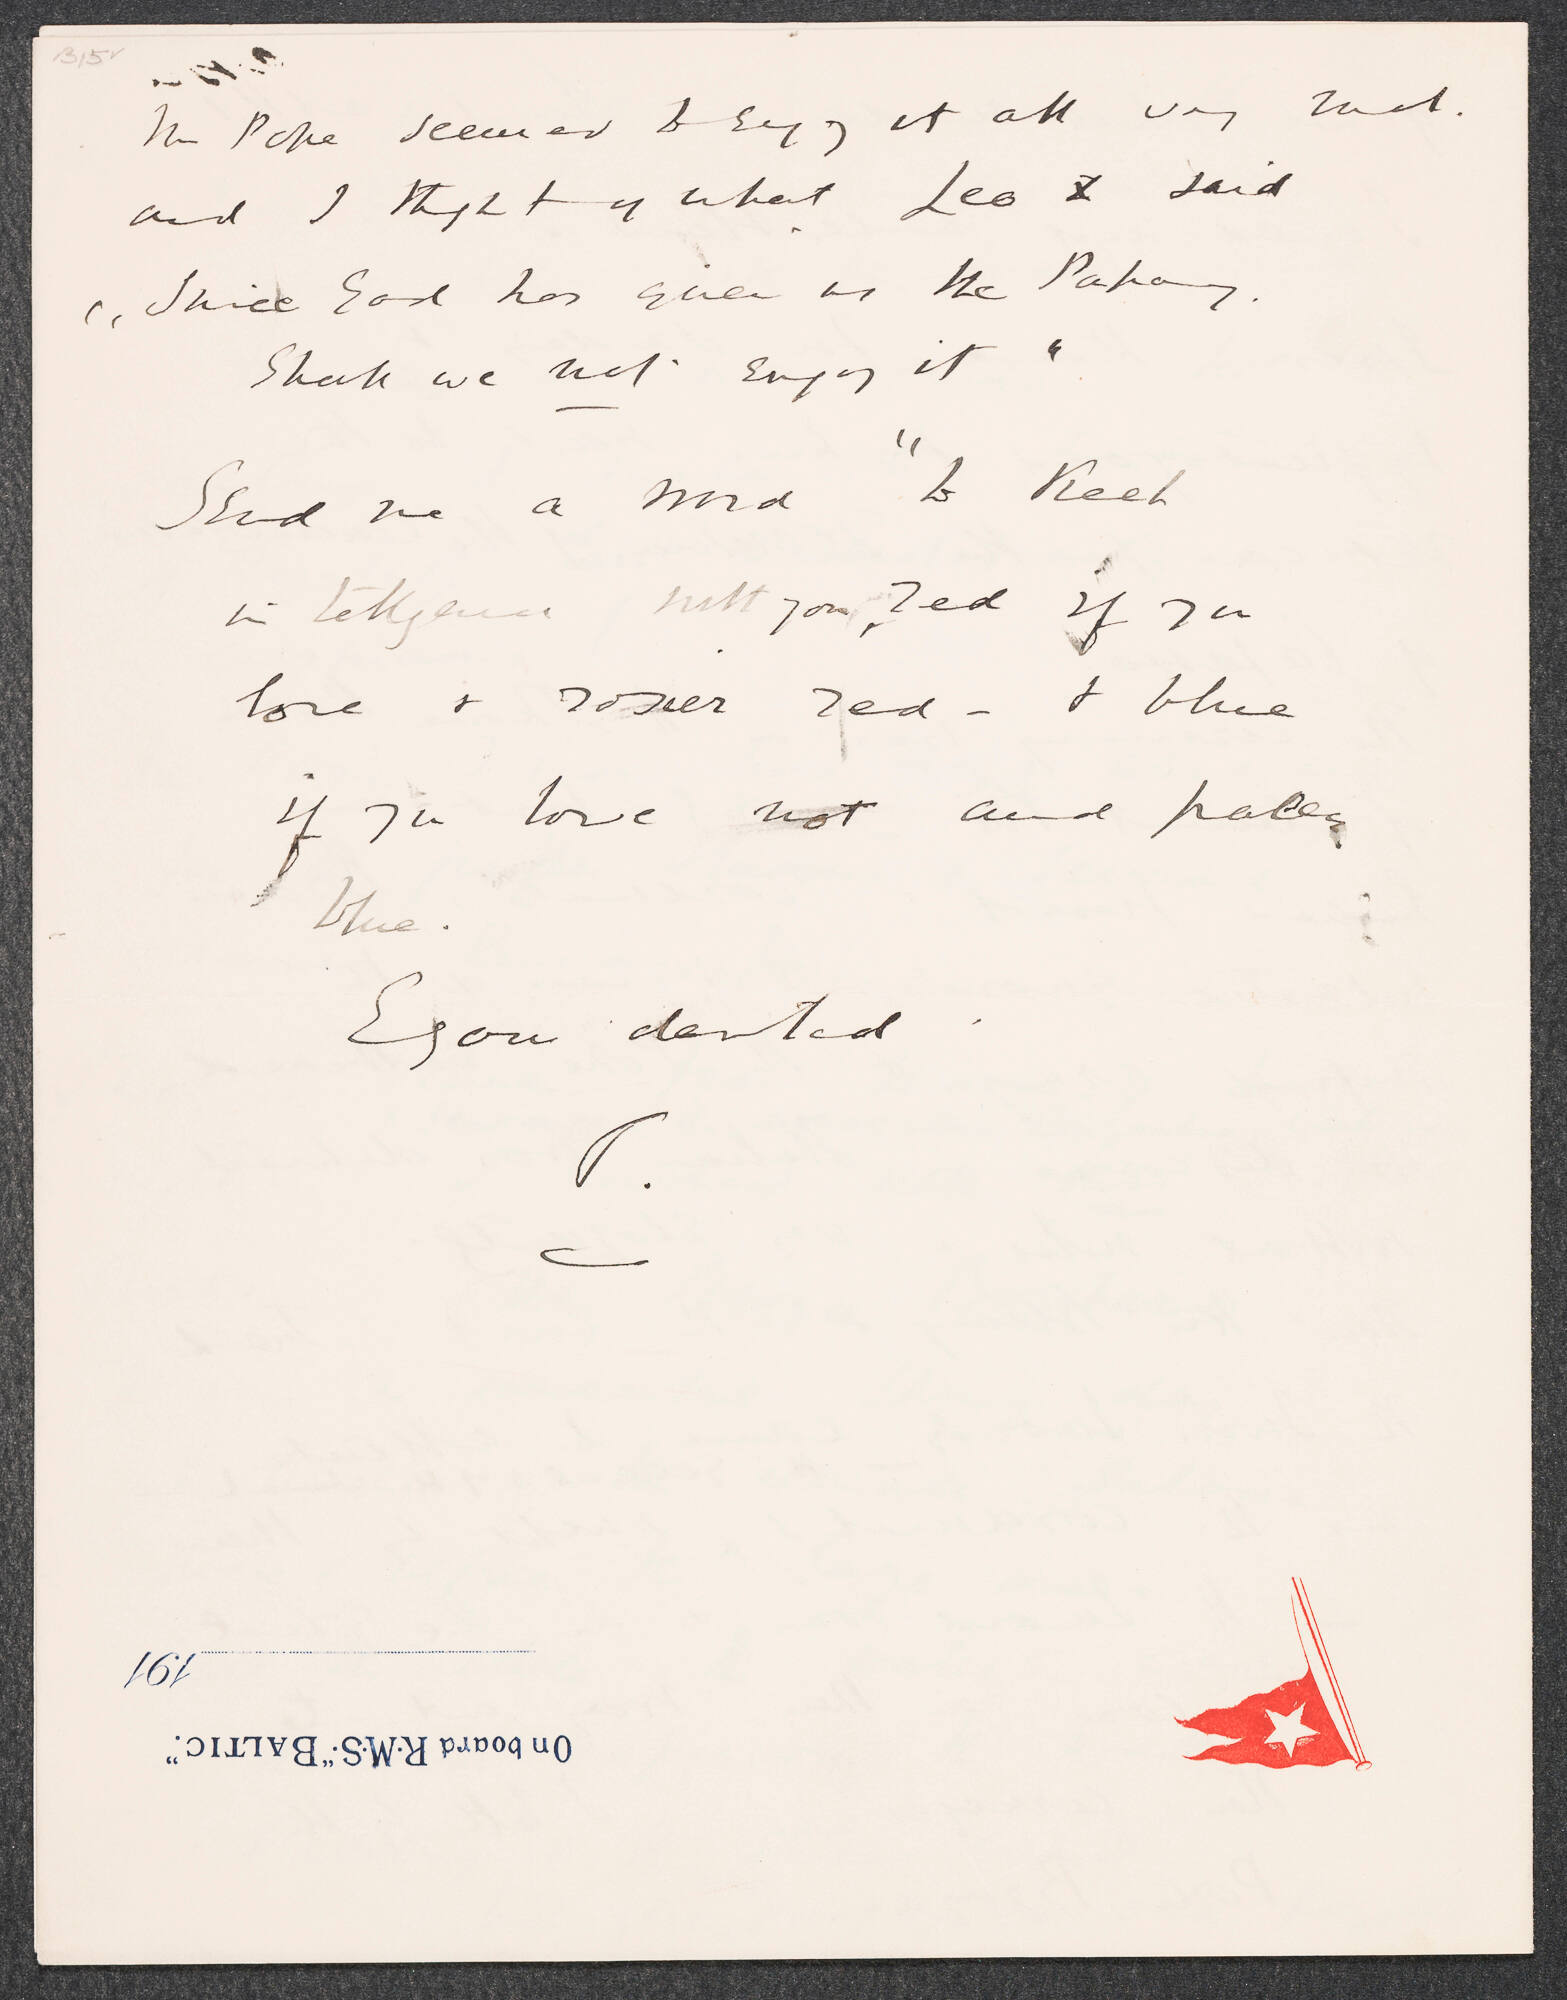 B15v
The Pope seemed to enjoy it all very much.
and I thought of what Leo X said
"Since God has given us the Papacy.
Shall we not enjoy it"
Send me a word "to keep
intelligence with you, red if you
love & rosier red - & blue
if you love not and paler
blue.
E you devoted
P.
191
On board R.M.S. "BALTIC".